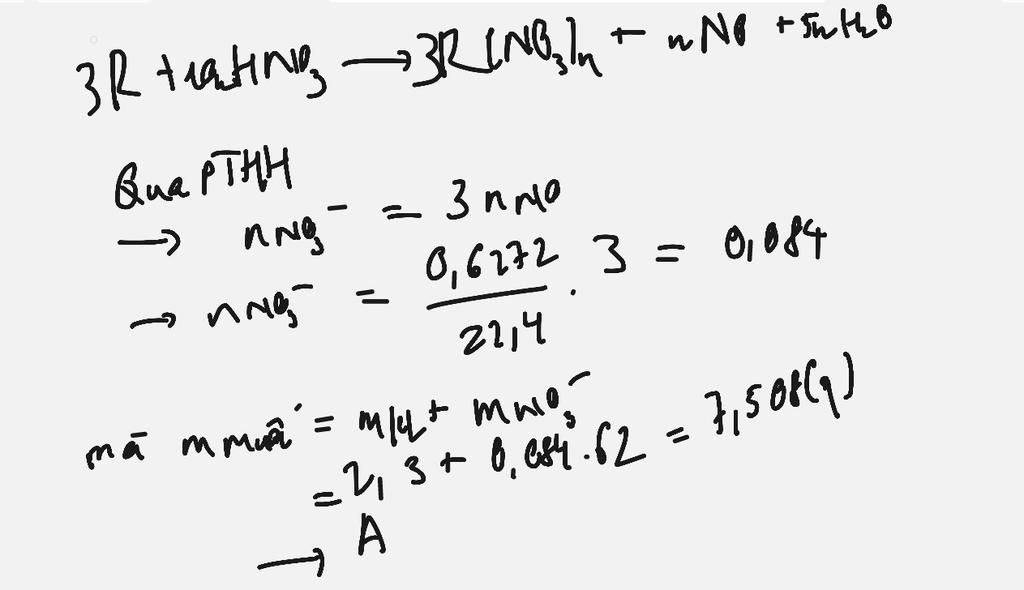 3R + 4nHNO3 → 3R(NO3)n + nNO + 2nH2O
Qua PTHH
→ nNO3⁻ = 3 nNO
→ nNO3⁻ = 0,6272 / 22,4 . 3 = 0,084
mà m muối = mkl + mNO3⁻
= 2,3 + 0,084.62 = 7,508(g)
→ A